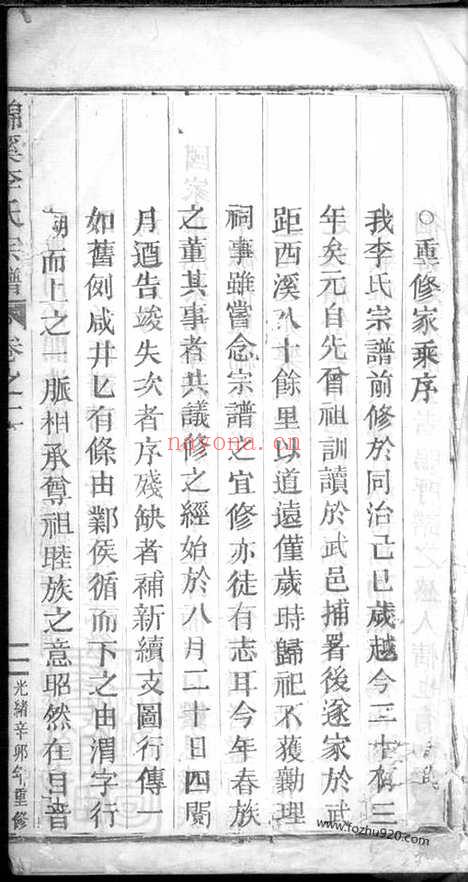 ○重修家乘序
我李氏宗譜前修於同治己巳歲越今二十有三
年矣元自先曾祖訓讀於武邑捕署後遂家於武
距西溪八十餘里以道遠僅歲時歸祀不獲勤理
祠事雖嘗念宗譜之宜修亦徒有志耳今年春族
之董其事者共議修之經始於八月二十日四閱
月迺告竣失次者序殘缺者補新續支圖行傳一
如舊例咸井井有條由鄴侯循而下之由渭字行
溯而上之一脈相承尊祖睦族之意昭然在目音
錦溪李氏宗譜
卷之一
光緒辛卯年重修
nayona.cn
www.fozhu920.com